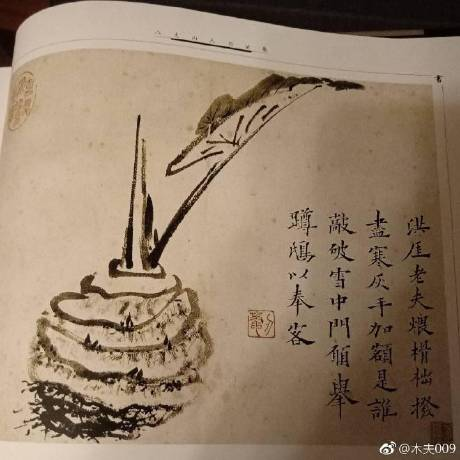 洪厓老夫煨榾柮撥
盡寒灰手加額是誰
敲破雪中門願舉
蹲鴟以奉客
@木夫009